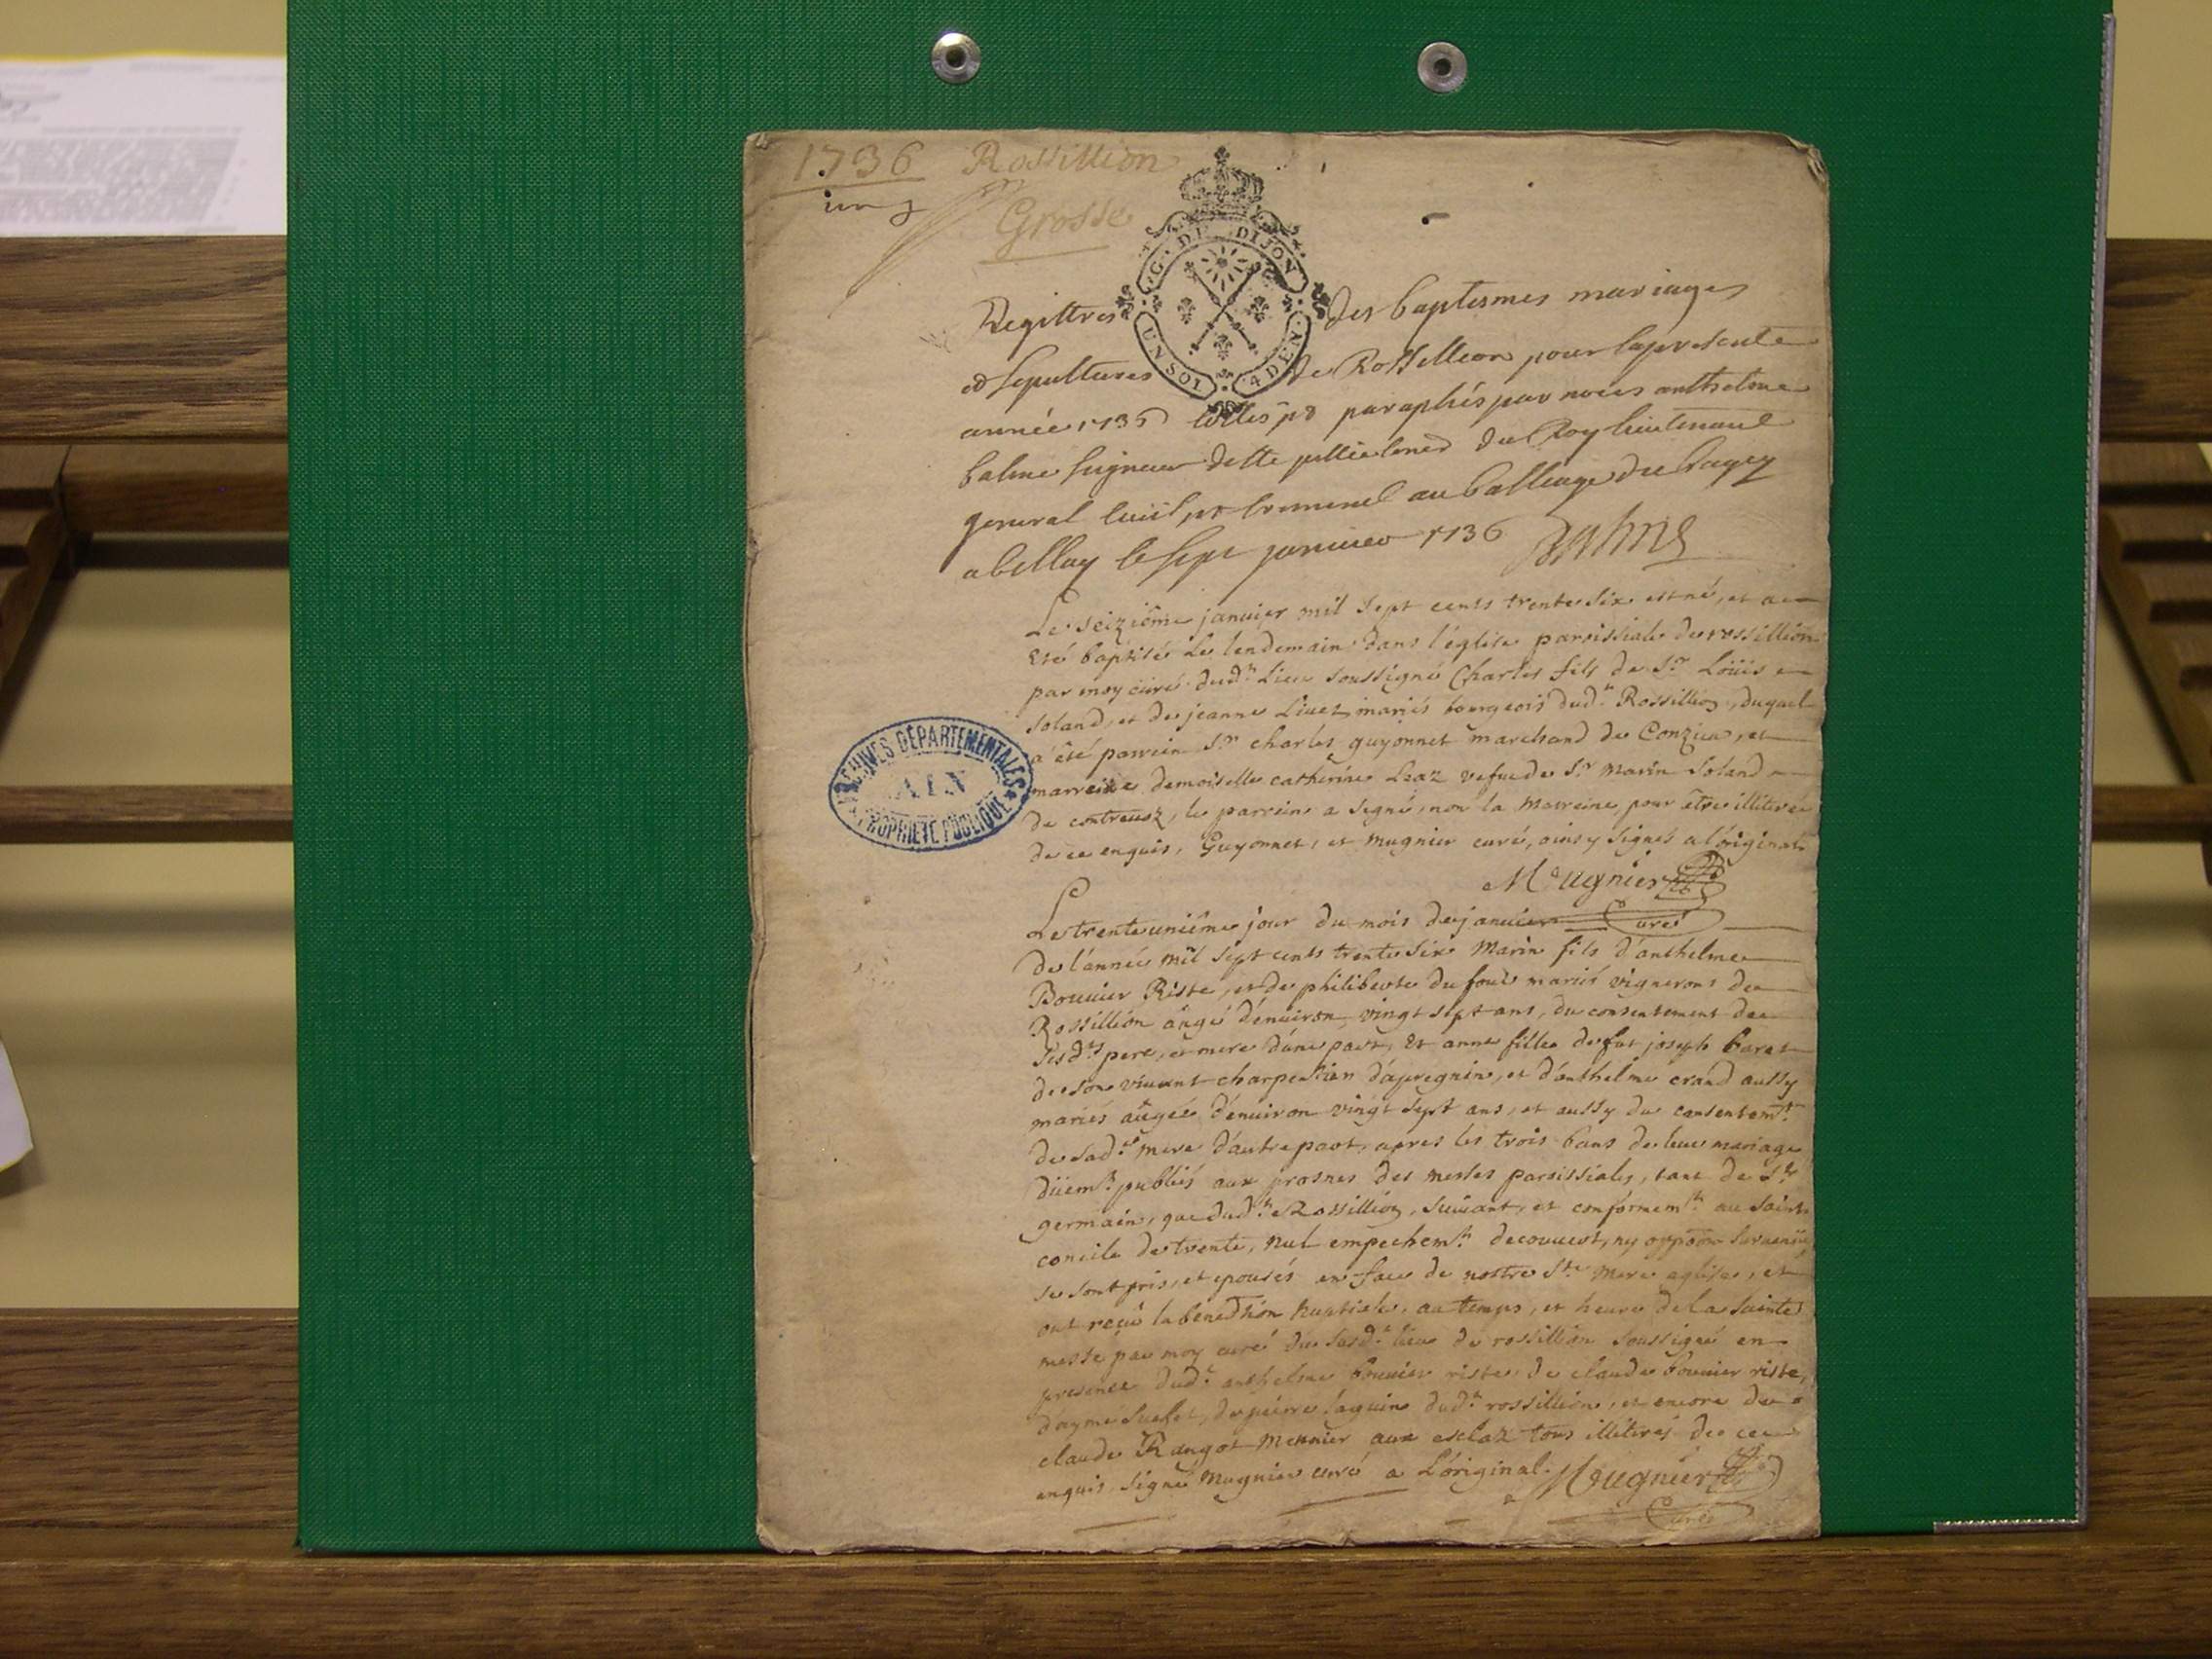 1736 Rossillion
Grosse
G. DE DIJON
UN SOL 4 DEN.
Registres des baptesmes mariages
et sepultures de Rossillion pour la presente
année 1736 paraphés par nous anthelme
balme seigneur du Roy lieutenant
general civil et criminel au balliage du bugey
a bellay le sept janvier 1736 Balme
Le seiziême janvier mil sept cents trente six est né, et a
eté baptisé le lendemain dans l'église paroissiale de rossillion
par moy curé dudt lieu soussigné Charles fils de Sr Loüis
Soland, et de jeanne Livet mariés bourgeois dudt Rossillion, duquel
a été parrein Sr charles guyonnet marchand de Conzieu, et
marreine demoiselle catherine Leaz vefue de Sr marin Soland
de contreuoz, le parrein a signé, non la marreine, pour être illitérée
de ce enquis, Guyonnet, et mugnier curé, ainsy signés a l'original
Meugnier
Curé
Le trente uniême jour du mois de janvier
de l'année mil sept cents trente six Marin fils d'anthelme
Bouuier Riste, et de philiberte du four mariés vignerons de
Rossillion âugé d'énuiron vingt sept ans, du consentement de
sesdts pere, et mere d'une part, Et anne fille de fut joseph
de son viuant charpentier d'apregnin, et d'anthelme crand aussy
mariés âugée d'énuiron vingt sept ans, et aussy du consentemt
de sadte mere d'autre part, apres les trois bans de leur mariage
düemt publiés aux prosnes des messes paroissiales, tant de St
germain, que dudt Rossillion, suiuant, et conformemt au saint
concile de trente, nul empechemt decouuert, ny oppôon suruenüe
se sont pris, et epousés en face de nostre Ste mere eglise, et
ont reçu la benediction nuptiale, au temps, et heure de la sainte
messe par moy curé du susdt lieu de rossillion soussigné en
presence dudt anthelme bouuier riste, de claude bouuier riste,
d'aymé Suefet, de pierre laguin dudt rossillion, et encore de
claude Rangot meunier aux esclaz tous illitérés de ce
enquis signé mugnier curé a L'original. Meugnier
Curé
ARCHIVES DÉPARTEMENTALES
AIN
PROPRIÉTÉ PUBLIQUE